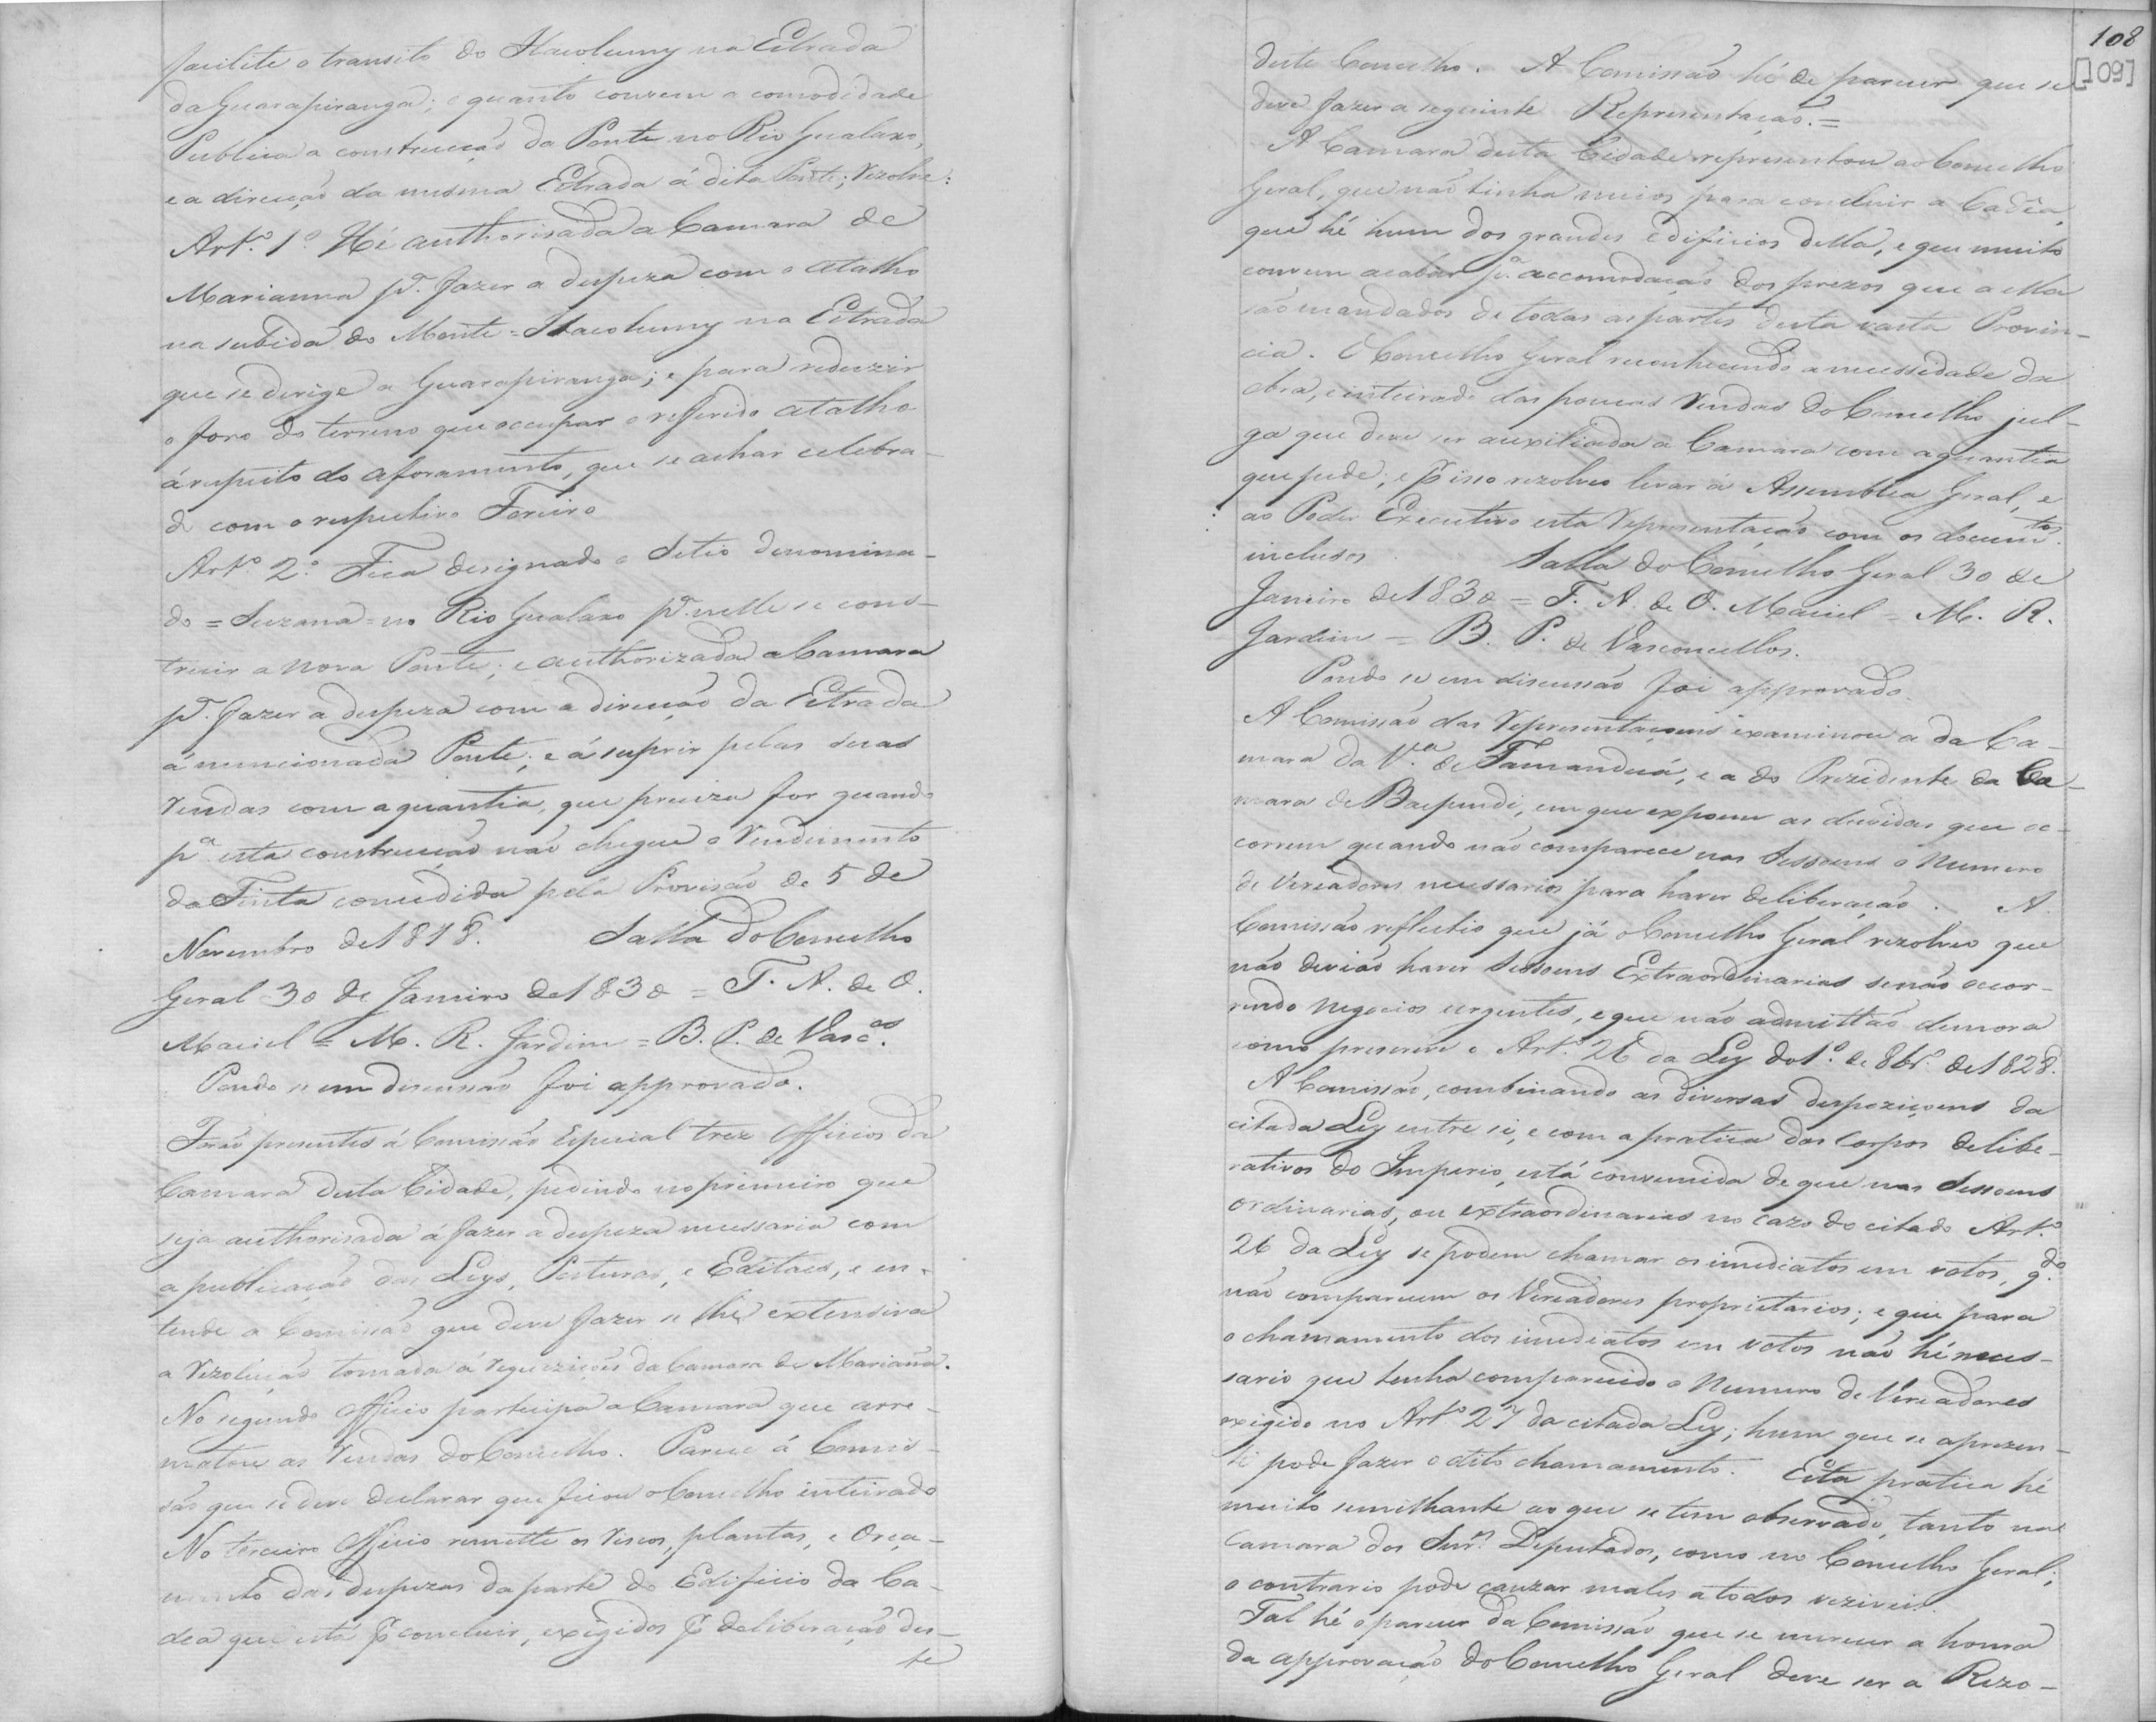 facilite o transito do Itacolumy na Estrada
da Guarapiranga; e quanto convem a comodidade
Publica a construcção da Ponte no Rio Gualaxo,
e a direcção da mesma Estrada á dita Ponte; Rezolve:
Art.º 1º Hé authorisada a Camara de
Marianna pª. fazer a despeza com o atalho
na subida do Monte = Itacolumy na Estrada
que se dirige a Guarapiranga; e para reduzir
o foro do terreno que occupar o refferido atalho
á respeito do aforamento, que se achar celebra-
do com o respectivo Foreiro
Art.º 2.º Fica designado o Sitio denomina-
do = Suzana = no Rio Gualaxo pª. nelle se cons-
truir a nova Ponte; e authorizada a Camara
pª. fazer a despeza com a direcção da Estrada
á mencionada Ponte; e á suprir pelas suas
Rendas com a quantia, que preciza for quando
pª esta construcção não chegue o Rendimento
da Finta concedida pela Provisão de 5 de
Novembro de 1818. Salla do Concelho
Geral 30 de Janeiro de 1830 = F. A. de O.
Maciel = M. R. Jardim = B. P. de Vasc.ᵒˢ
Pondo se em discussão foi approvado.
Forão presentes á Comissão Especial trez Officios da
Camara desta Cidade, pedindo no primeiro que
seja authorisada á fazer a despeza necessaria com
a publicação das Leys, Posturas, e Editaes, e en-
tende a Comissão que deve fazer se lhe extensiva
a Rezolução tomada á requezição da Camara de Mariana.
No segundo Officio participa a Camara que arre-
matou as Rendas do Concelho. Parece á Comis-
são que se deve declarar que ficou o Concelho inteirado
No terceiro Officio remette os riscos, plantas, e Orça-
mento das despezas da parte do Edificio da Ca-
dea que está pʳ concluir, exigidos pʳ deliberação des-
te
108
[109]
deste Concelho. A Comissão hé de parecer que se
deve fazer a seguinte Representação. =
A Camara desta Cidade representou ao Concelho
Geral, que não tinha meios para concluir a Cadêa
que hé hum dos grandes edificios della, e que muito
convem acabar p.ª accomodação dos prezos que a ella
são mandados de todas as partes desta vasta Provin-
cia. O Concelho Geral reconhecendo a necessidade da
obra, e inteirado das poucas Rendas do Concelho jul-
ga que deve ser auxiliada a Camara com a quantia
que pede; e pʳ isso rezolveo levar á Assemblea Geral, e
ao Poder Executivo esta Representação com os documᵗᵒˢ.
inclusos. Salla do Concelho Geral 30 de
Janeiro de 1830 = F. A. de O. Maciel = M. R.
Jardim = B. P. de Vasconcellos.
Pondo se em discussão foi approvado.
A Comissão das Representaçoens examinou a da Ca-
mara da V.ᵃ de Tamanduá, e a do Prezidente da Ca-
mara de Baependi, em que expoem as duvidas que oc-
correm quando não comparece nas Sessoens o Numero
de Vereadores necessarios para haver deliberação. A
Comissão reflectio que já o Concelho Geral rezolveo que
não devião haver Sessoens Extraordinarias senão occor-
rendo Negocios urgentes, e que não admittão demora
como prescreve o Art.º 26 da Ley do 1.º de 8bʳº. de 1828.
A Comissão, combinando as diversas dispoziçoens da
citada Ley entre si, e com a pratica dos Corpos delibe-
rativos do Imperio, está convencida de que nas Sessoens
ordinarias, ou extraordinarias no cazo do citado Art.º
26 da Ley se podem chamar os imediatos em votos, q.ᵈᵒ
não comparecem os Vereadores proprietarios; e que para
o chamamento dos imediatos em votos não hé neces-
sario que tenha comparecido o Numero de Vereadores
exigido no Art.º 27 da citada Ley; hum que se aprezen-
te pode fazer o dito chamamento. Esta pratica hé
muito semelhante ao que se tem observado, tanto na
Camara dos Snr.ˢ Deputados, como no Concelho Geral;
o contrario pode cauzar males a todos
Tal hé o parecer da Comissão que se merecer a honra
da approvação do Concelho Geral deve ser a Rezo-